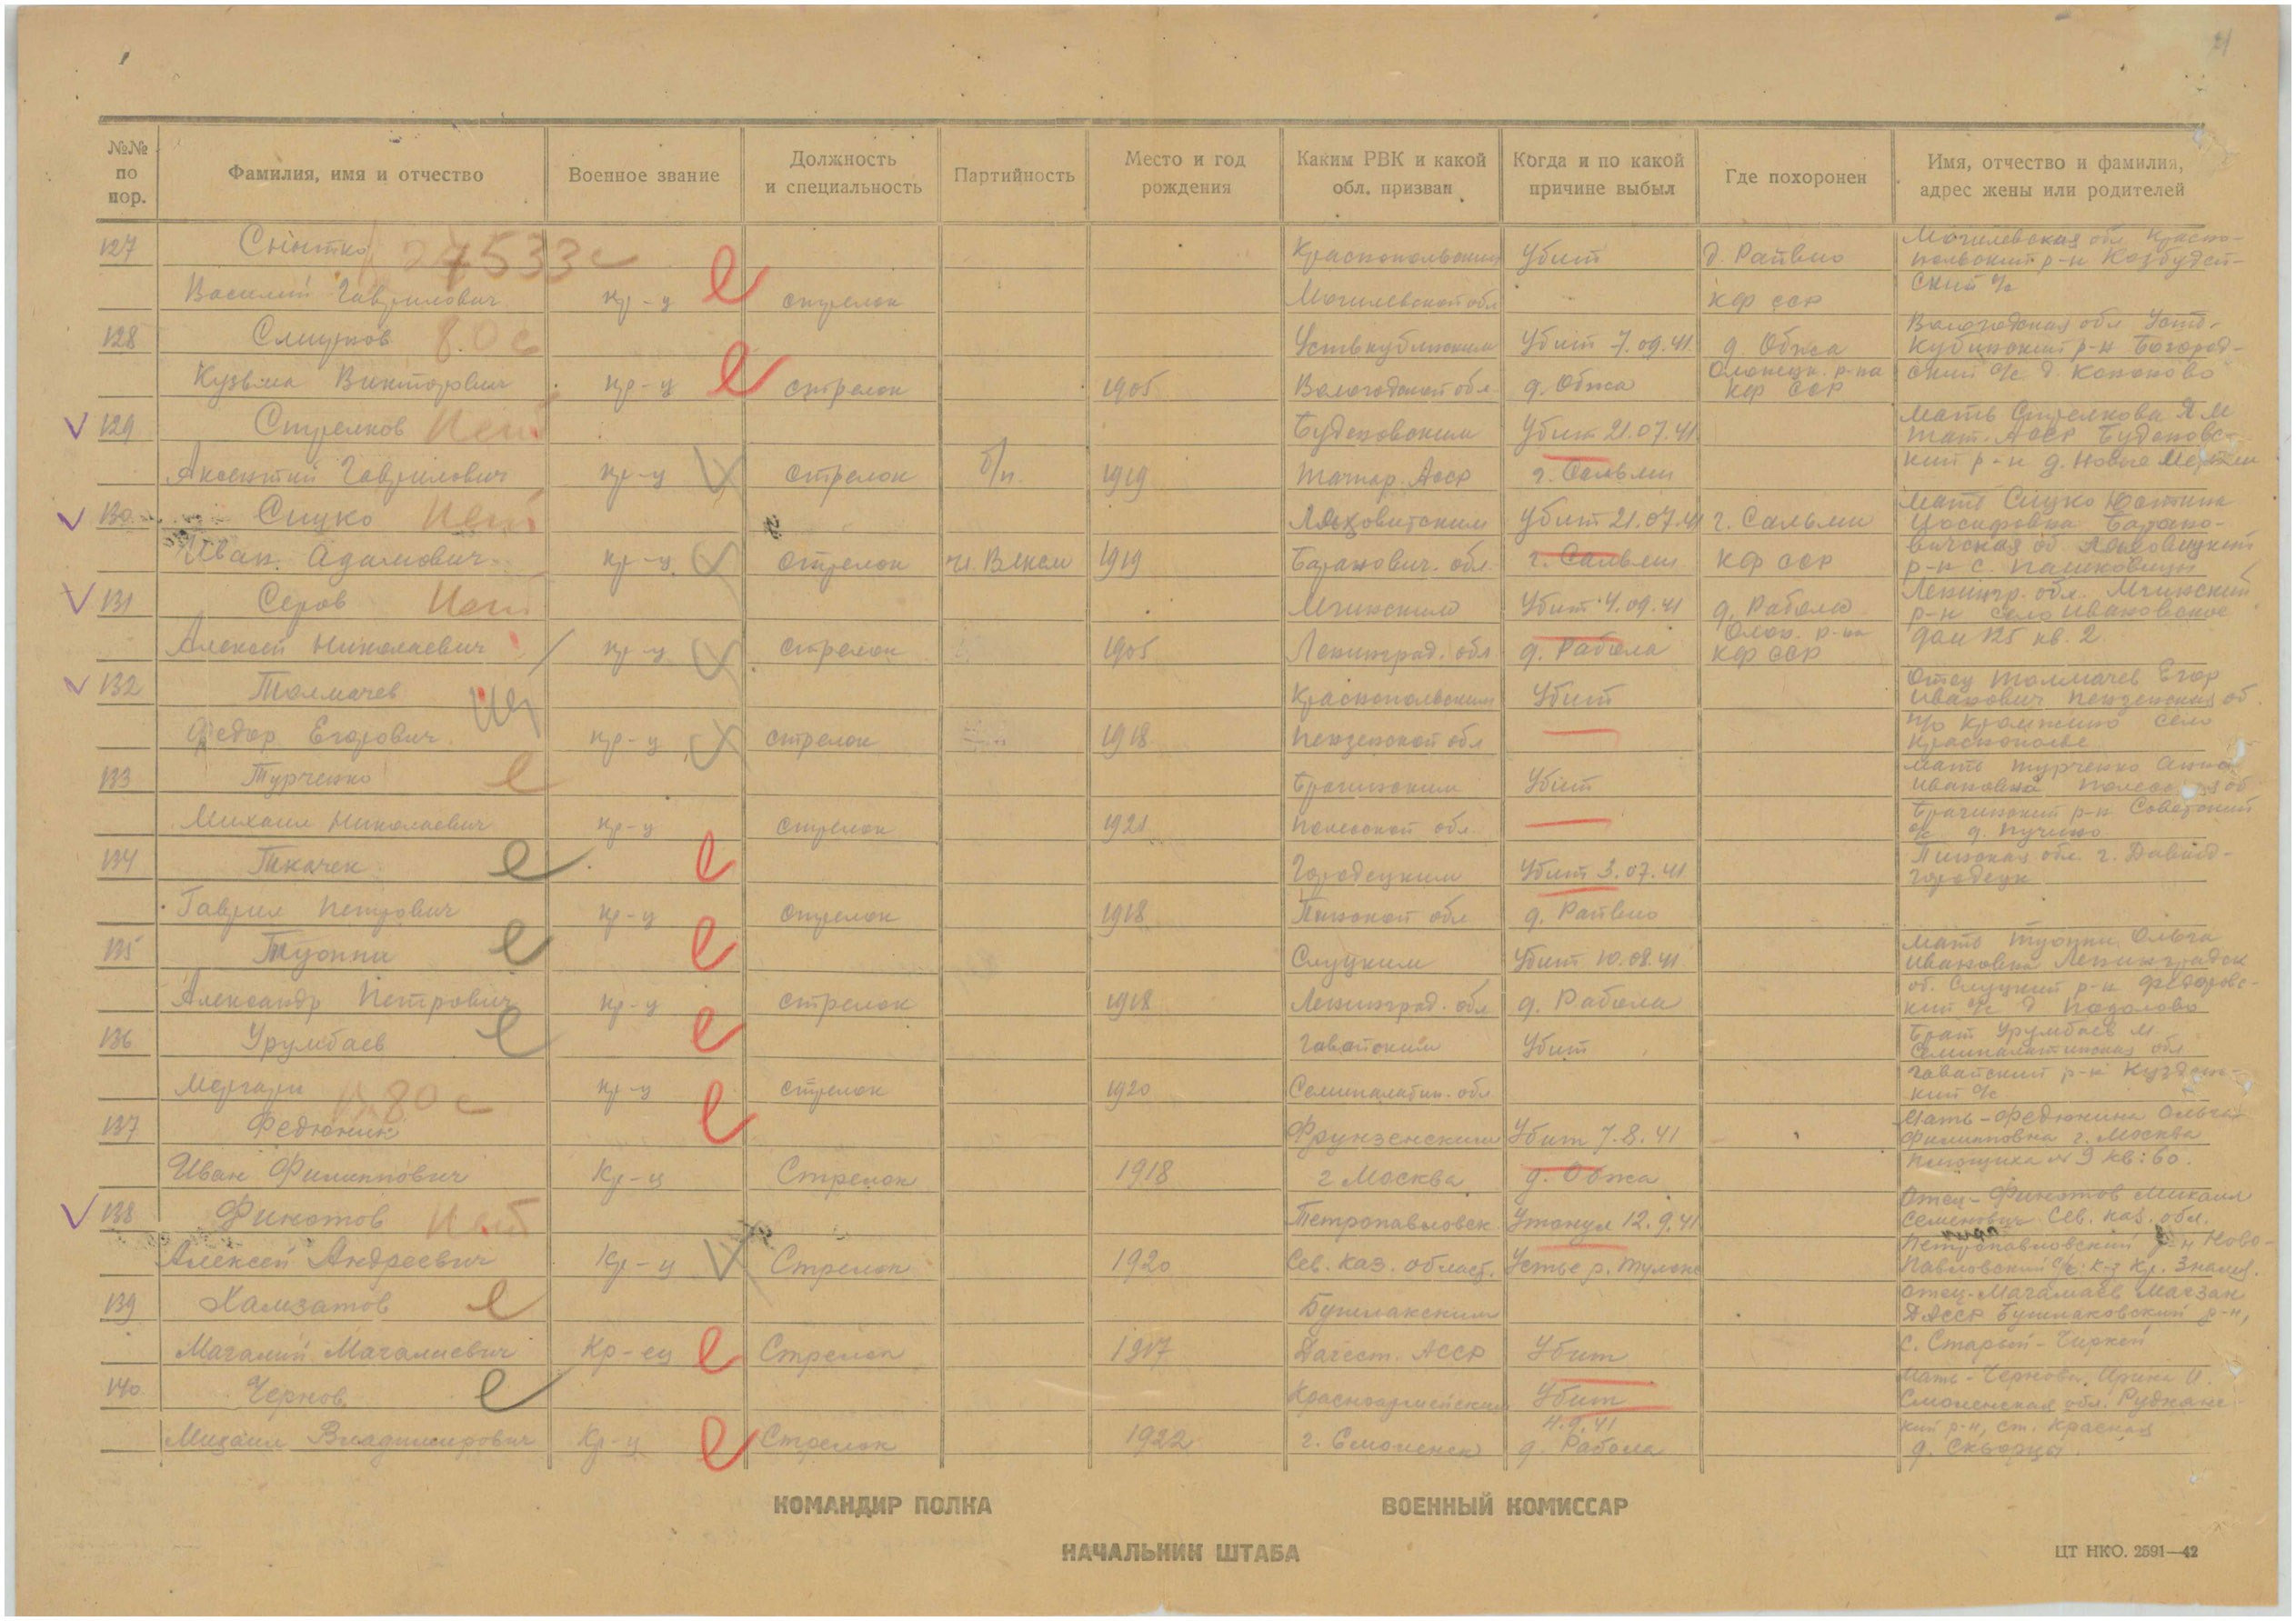 21
№№ по пор.
Фамилия, имя и отчество
Военное звание
Должность и специальность
Партийность
Место и год рождения
Каким РВК и какой обл. призван
Когда и по какой причине выбыл
Где похоронен
Имя, отчество и фамилия, адрес жены или родителей
127 Краснопольским Убит д. Райвио Могилевская обл Красно-
польский р-н
Василий Гаврилович кр-ц стрелок Могилевской обл КФ ССР ский с/с
128 Смирнов 80с Устькубинским Убит 7.09.41 д. Обжа Вологодская обл Усть-
Кубинский р-н Богород-
Кузьма Викторович кр-ц стрелок 1905 Вологодской обл д. Обжа Олонецк. р-на КФ ССР ский с/с д. Кононово
129 Стрелков Нет Буденовским Убит 21.07.41 мать Стрелкова Я М
Тат. АССР Буденовс-
Аксентий Гаврилович кр-ц стрелок б/п 1919 Татар. АССР г. Сальми кий р-н д. Новые
130 Сицко Нет Ляховитским Убит 21.07.41 г. Сальми мать Сицко Юстина
Иосифовна Барано-
Иван Адамович кр-ц стрелок чл. ВЛКСМ 1919 Баранович. обл. г. Сальми КФ ССР вичская об. Ляховицкий
р-н с. Пашковцы
131 Серов Нет Мгинским Убит 4.09.41 д. Рабола Ленингр. обл. Мгинский
р-н село Ивановское
Алексей Николаевич кр-ц стрелок 1905 Ленинград. обл д. Рабола Олон. р-на КФ ССР дом 125 кв. 2
132 Толмачев Нет Краснопольским Убит Отец Толмачев Егор
Иванович Пензенская об.
Федор Егорович кр-ц стрелок 1918 Пензенской обл п/о село
Краснополье
133 Турченко Брагинским Убит мать Турченко Анна
Ивановна обл
Михаил Николаевич кр-ц стрелок 1921 Полесской обл. Брагинский р-н Советский
с/с д.
134 Ткачек Городецким Убит 3.07.41 Пинская обл. г. Давид-
Городецк
Гаврил Петрович кр-ц стрелок 1918 Пинской обл д. Райвио
135 Туоппи Слуцким Убит 10.08.41 мать Туоппи Ольга
Ивановна Ленинградск
Александр Петрович кр-ц стрелок 1918 Ленинград. обл д. Рабола об. Слуцкий р-н Федоровс-
кий с/с д
136 Урумбаев Убит брат Урумбаев М
Семипалатинская обл
кр-ц стрелок 1920 Семипалатин. обл р-н
кий с/с
137 Федюнин 80с Фрунзенским Убит 7.8.41 Мать - Федюнина Ольга
Филипповна г. Москва
Иван Филиппович Кр-ц Стрелок 1918 г Москва д. Обжа Плющиха № 9 кв: 60.
138 Финотов Нет Петропавловск Утонул 12.9.41 Отец - Финотов Михаил
Семенович Сев. каз. обл.
Алексей Андреевич Кр-ц Стрелок 1920 Сев. каз. област. Устье р. Петропавловский р-н Ново-
Павловский с/с к-з Кр. Знамя.
139 Хамзатов Буйнакским Отец - Магамаев
ДАССР р-н,
Магамий Магамиевич Кр-ец Стрелок 1917 Дагест. АССР Убит с. Старый - Чиркей
140 Чернов Красноармейским Убит Мать - Чернова Арина И.
Смоленская обл.
Михаил Владимирович Кр-ц Стрелок 1922 г. Смоленск 4.9.41 д. Рабола кий р-н, ст. Красная
д. Скворцы.
КОМАНДИР ПОЛКА
ВОЕННЫЙ КОМИССАР
НАЧАЛЬНИК ШТАБА
ЦТ НКО. 2591—42